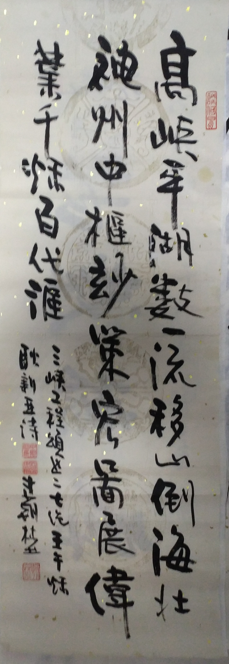 高峡平湖数一流移山倒海壮
神州中枢妙策宏图展伟
业千秋百代涯
三峡工程颂
耿新亚诗